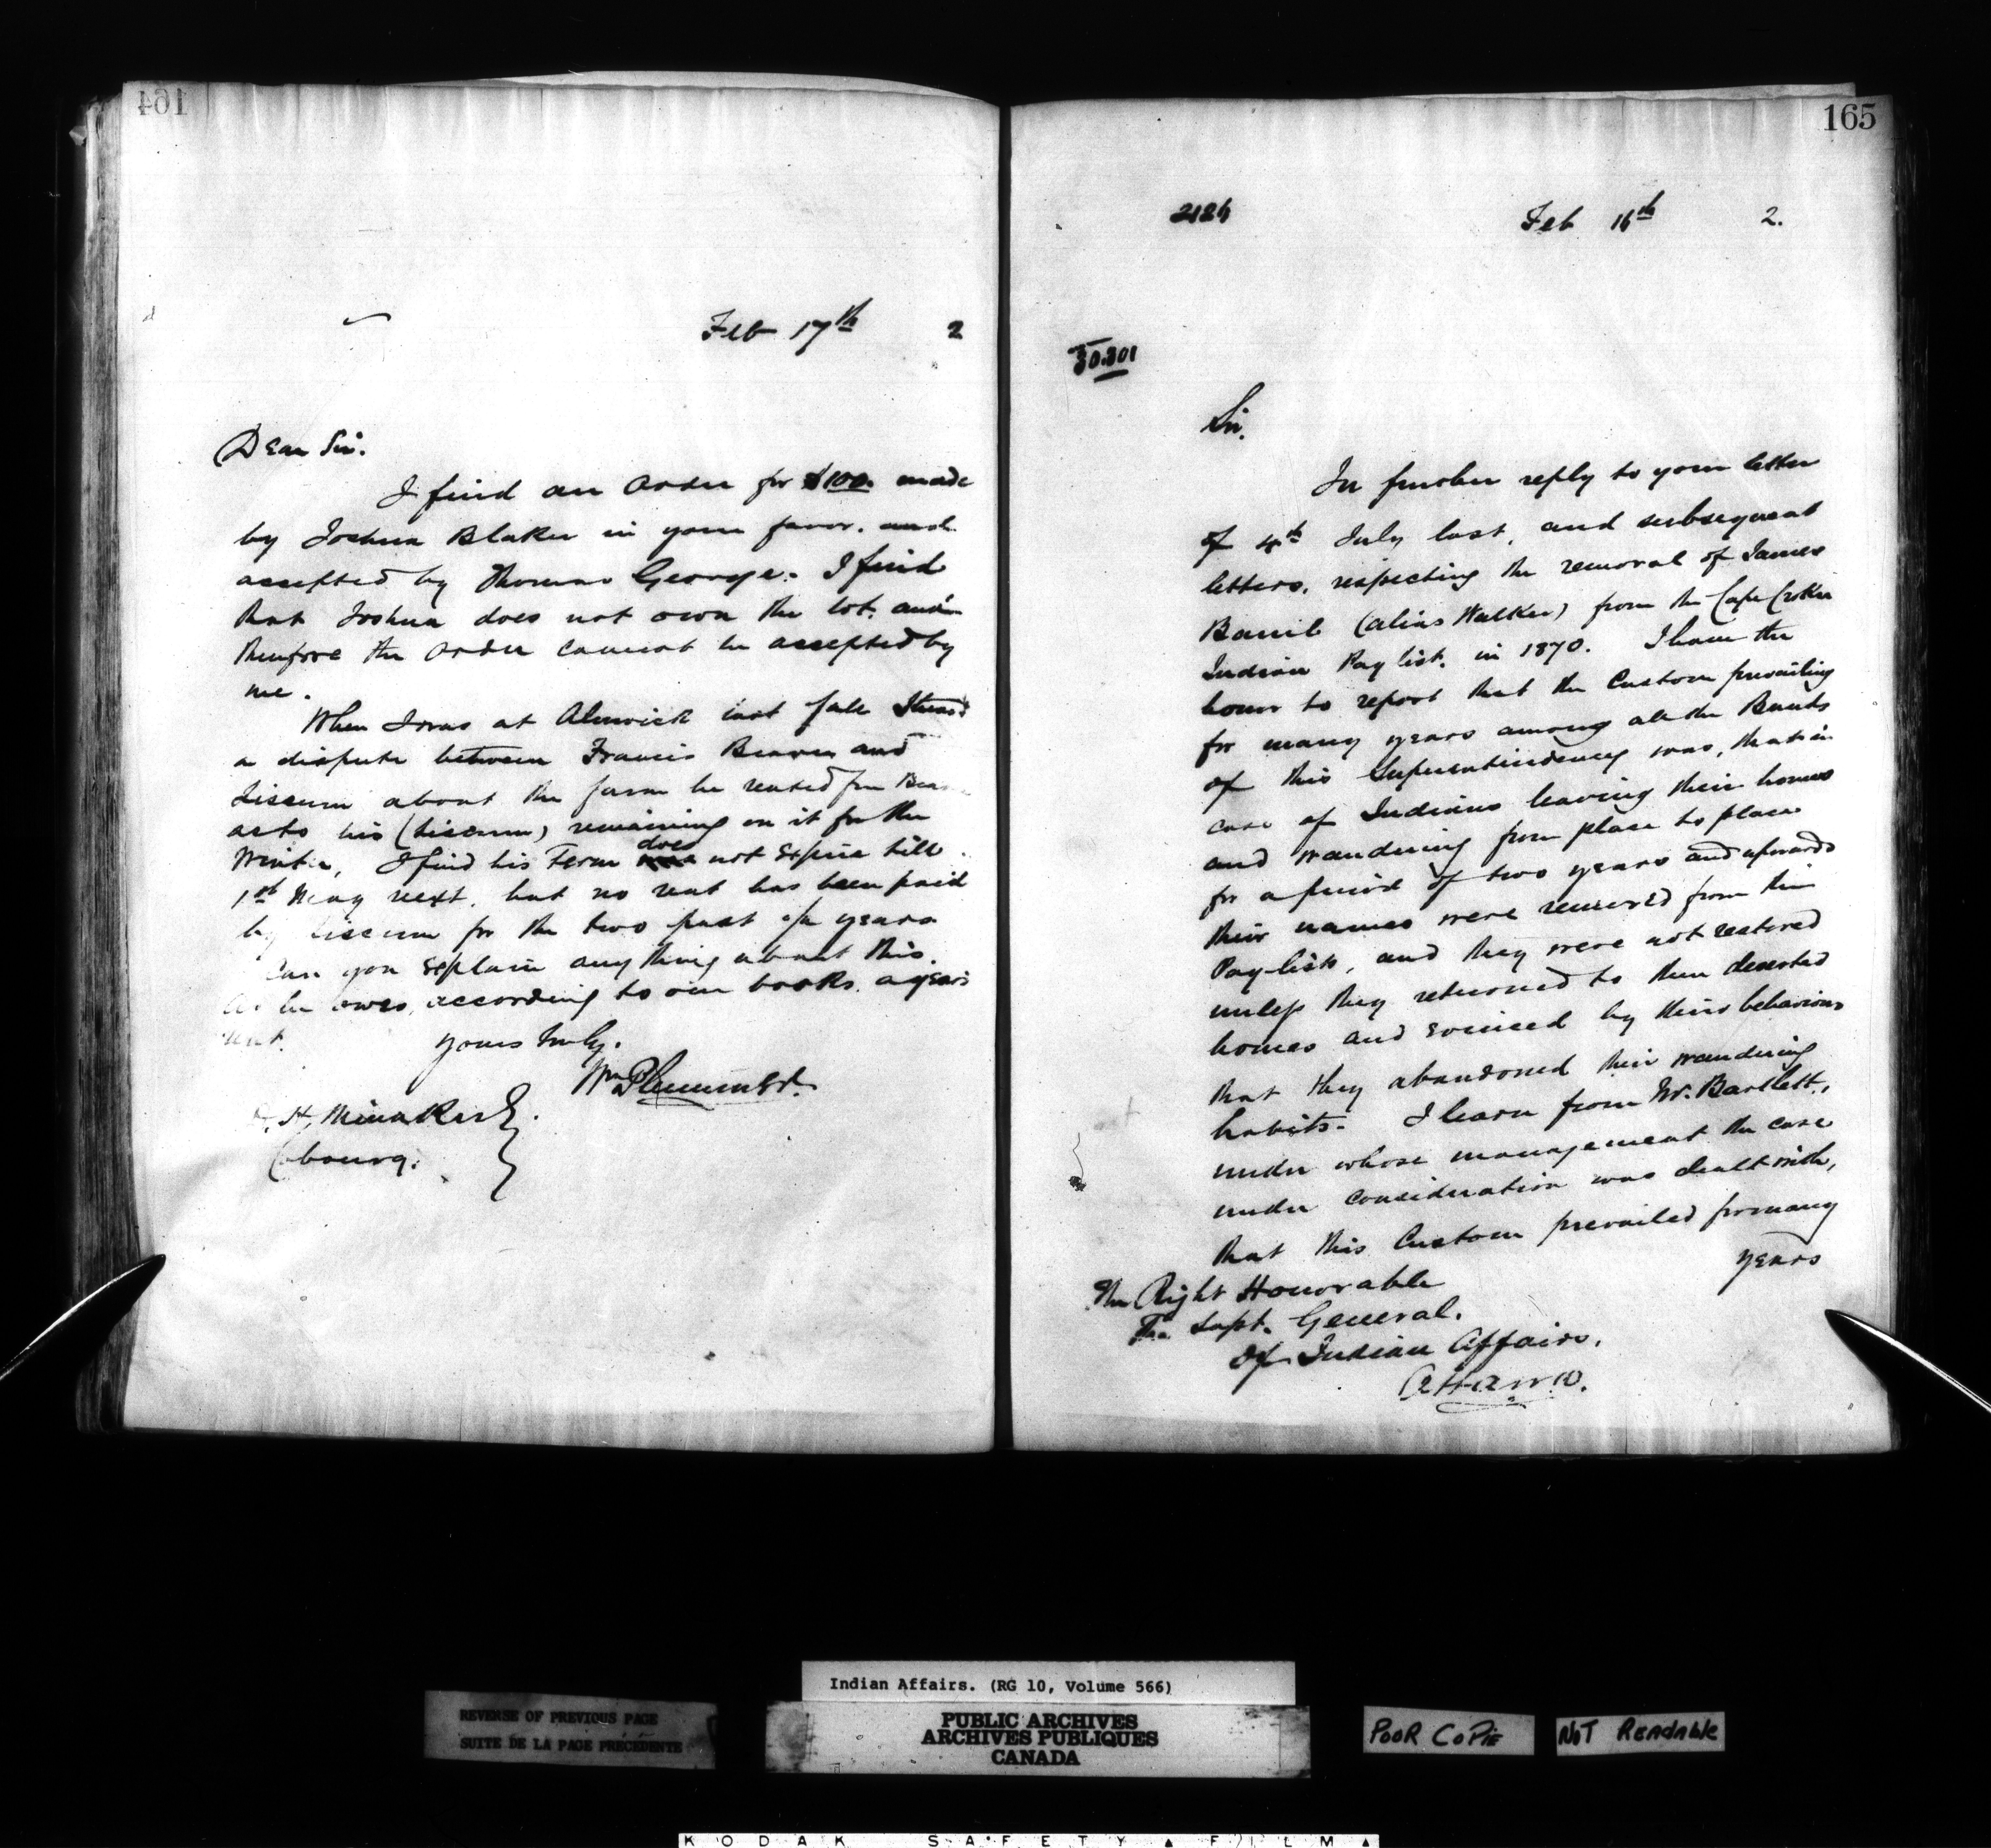 164
Feb 17th 2
Dear Sir.
I find an order for $100. made
by Joshua Blaker in your favor. and
accepted by Thomas George. I find
that Joshua does not own the lot. and
therefore the order cannot be accepted by
me.
When I was at Alnwick last fall
a dispute between Francis Beaver and
about the farm he rented from
as to his remaining on it for the
Winter, I find his Term does not expire till
1st May next. but no rent has been paid
by for the two past years
Can you explain anything about this.
As he owes, according to our books. a years
rent.
yours truly.
Wm Plummer
H. Minaker
Cobourg.
165
Feb 16th 2.
30.301
Sir.
In further reply to your letter
of 4th July last, and subsequent
letters, respecting the removal of James
(alias Walker) from the Cape Croker
Indian Pay list. in 1870. I have the
honor to report that the Custom prevailing
for many years among all the Bands
of this Superintendency was, that in
case of Indians leaving their homes
and wandering from place to place
for a period of two years and upwards
their names were removed from the
Pay-lists, and they were not restored
unless they returned to their deserted
homes and evinced by their behaviour
that they abandoned their wandering
habits. I learn from Mr. Bartlett,
under whose management the case
under consideration was dealt with,
that this Custom prevailed for many
years
The Right Honorable
The Supt. General.
Of Indian Affairs.
Ottawa.
Indian Affairs. (RG 10, Volume 566)
REVERSE OF PREVIOUS PAGE
SUITE DE LA PAGE PRÉCÉDENTE
PUBLIC ARCHIVES
ARCHIVES PUBLIQUES
CANADA
POOR COPIE
NOT READABLE
KODAK SAFETY FILM